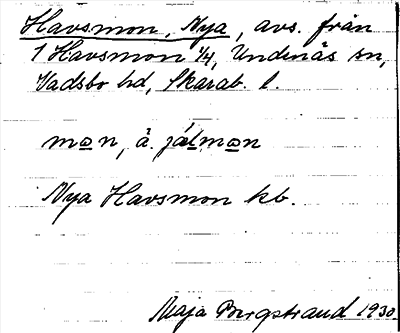 Havsmon, Nya, avs. från
1 Havsmon 1/4, Undenäs sn,
Vadsbo hd, Skarab. l.
mon, å. jálmon
Nya Havsmon kb.
Maja Bergstrand 1930